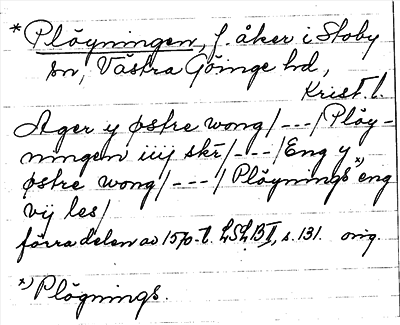 * Plögningen, f. åker i Stoby
sn, Västra Göinge hd,
Krist. l.
Ager y østre wong/---/Plög-
ningen iiij skr/---/Eng y
østre wong/---/Plögnings*) eng
vij les/
förra delen av 1570-t. LSLB II, s. 131. orig.
*) Plögnings.